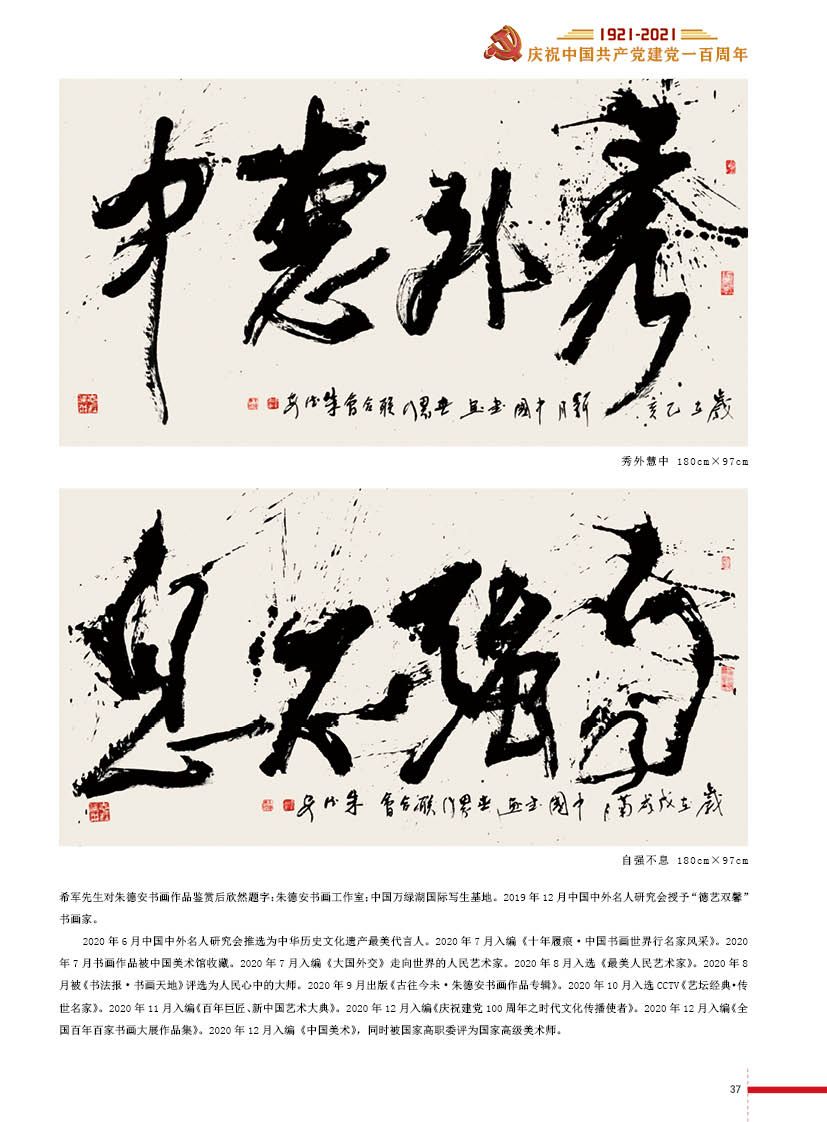 1921-2021
庆祝中国共产党建党一百周年
秀外慧中
秀外慧中 180cm×97cm
自强不息
自强不息 180cm×97cm
希军先生对朱德安书画作品鉴赏后欣然题字：朱德安书画工作室；中国万绿湖国际写生基地。2019 年 12 月中国中外名人研究会授予“德艺双馨”
书画家。
2020 年 6 月中国中外名人研究会推选为中华历史文化遗产最美代言人。2020 年 7 月入编《十年履痕·中国书画世界行名家风采》。2020
年 7 月书画作品被中国美术馆收藏。2020 年 7 月入编《大国外交》走向世界的人民艺术家。2020 年 8 月入选《最美人民艺术家》。2020 年 8
月被《书法报·书画天地》评选为人民心中的大师。2020 年 9 月出版《古往今未·朱德安书画作品专辑》。2020 年 10 月入选 CCTV《艺坛经典·传
世名家》。2020 年 11 月入编《百年巨匠、新中国艺术大典》。2020 年 12 月入编《庆祝建党 100 周年之时代文化传播使者》。2020 年 12 月入编《全
国百年百家书画大展作品集》。2020 年 12 月入编《中国美术》，同时被国家高职委评为国家高级美术师。
37